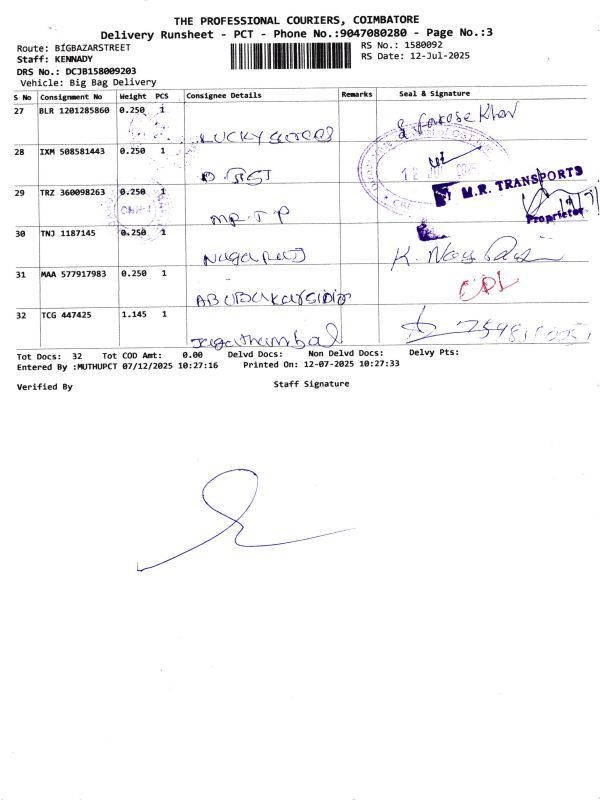 THE PROFESSIONAL COURIERS, COIMBATORE
Delivery Runsheet - PCT - Phone No.:9047080280 - Page No.:3
Route: BIGBAZARSTREET
RS No.: 1580092
Staff: KENNADY
RS Date: 12-Jul-2025
DRS No.: DCJB158009203
Vehicle: Big Bag Delivery
S No Consignment No Weight PCS Consignee Details Remarks Seal & Signature
27 BLR 1201285860 0.250 1
LUCKY
28 IXM 508581443 0.250 1
12
M.R. TRANSPORTS
29 TRZ 360098263 0.250 1
Proprietor
MR. T P
30 TNJ 1187145 0.250 1
Nagaraj
K. Nag
31 MAA 577917983 0.250 1
32 TCG 447425 1.145 1
Jagathambal
Tot Docs: 32 Tot COD Amt: 0.00 Delvd Docs: Non Delvd Docs: Delvy Pts:
Entered By :MUTHUPCT 07/12/2025 10:27:16 Printed On: 12-07-2025 10:27:33
Verified By Staff Signature